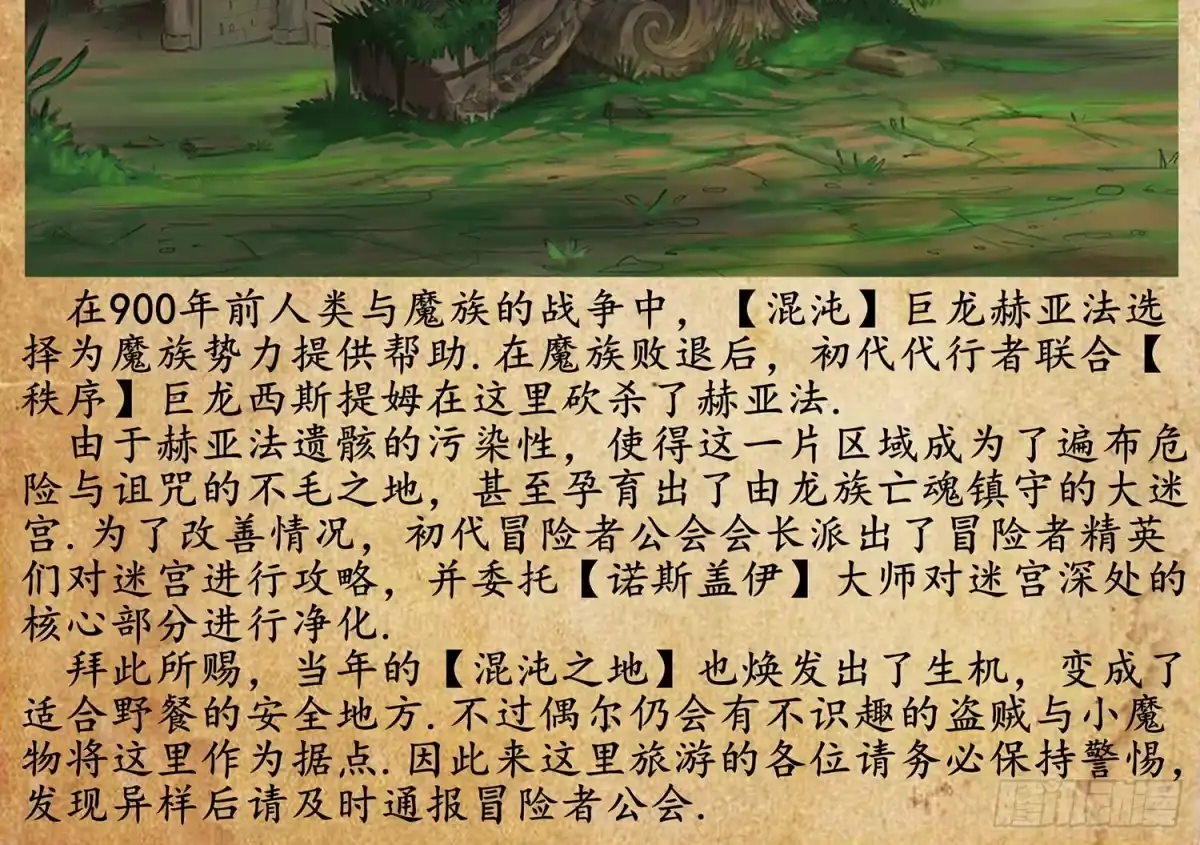 在900年前人类与魔族的战争中，【混沌】巨龙赫亚法选
择为魔族势力提供帮助.在魔族败退后，初代代行者联合【
秩序】巨龙西斯提姆在这里砍杀了赫亚法.
由于赫亚法遗骸的污染性，使得这一片区域成为了遍布危
险与诅咒的不毛之地，甚至孕育出了由龙族亡魂镇守的大迷
宫.为了改善情况，初代冒险者公会会长派出了冒险者精英
们对迷宫进行攻略，并委托【诺斯盖伊】大师对迷宫深处的
核心部分进行净化.
拜此所赐，当年的【混沌之地】也焕发出了生机，变成了
适合野餐的安全地方.不过偶尔仍会有不识趣的盗贼与小魔
物将这里作为据点.因此来这里旅游的各位请务必保持警惕，
发现异样后请及时通报冒险者公会.
腾讯动漫